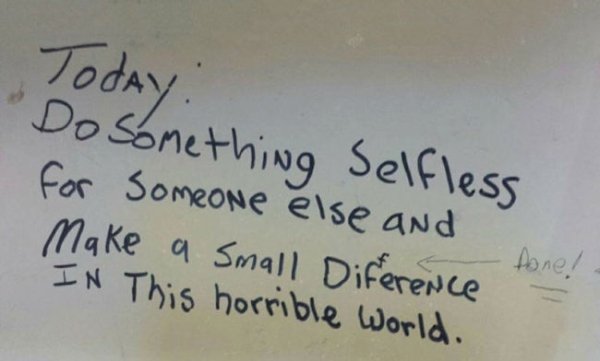 Today:
Do Something Selfless
for Someone else and
Make a Small Difference ← Done!
IN This horrible World.